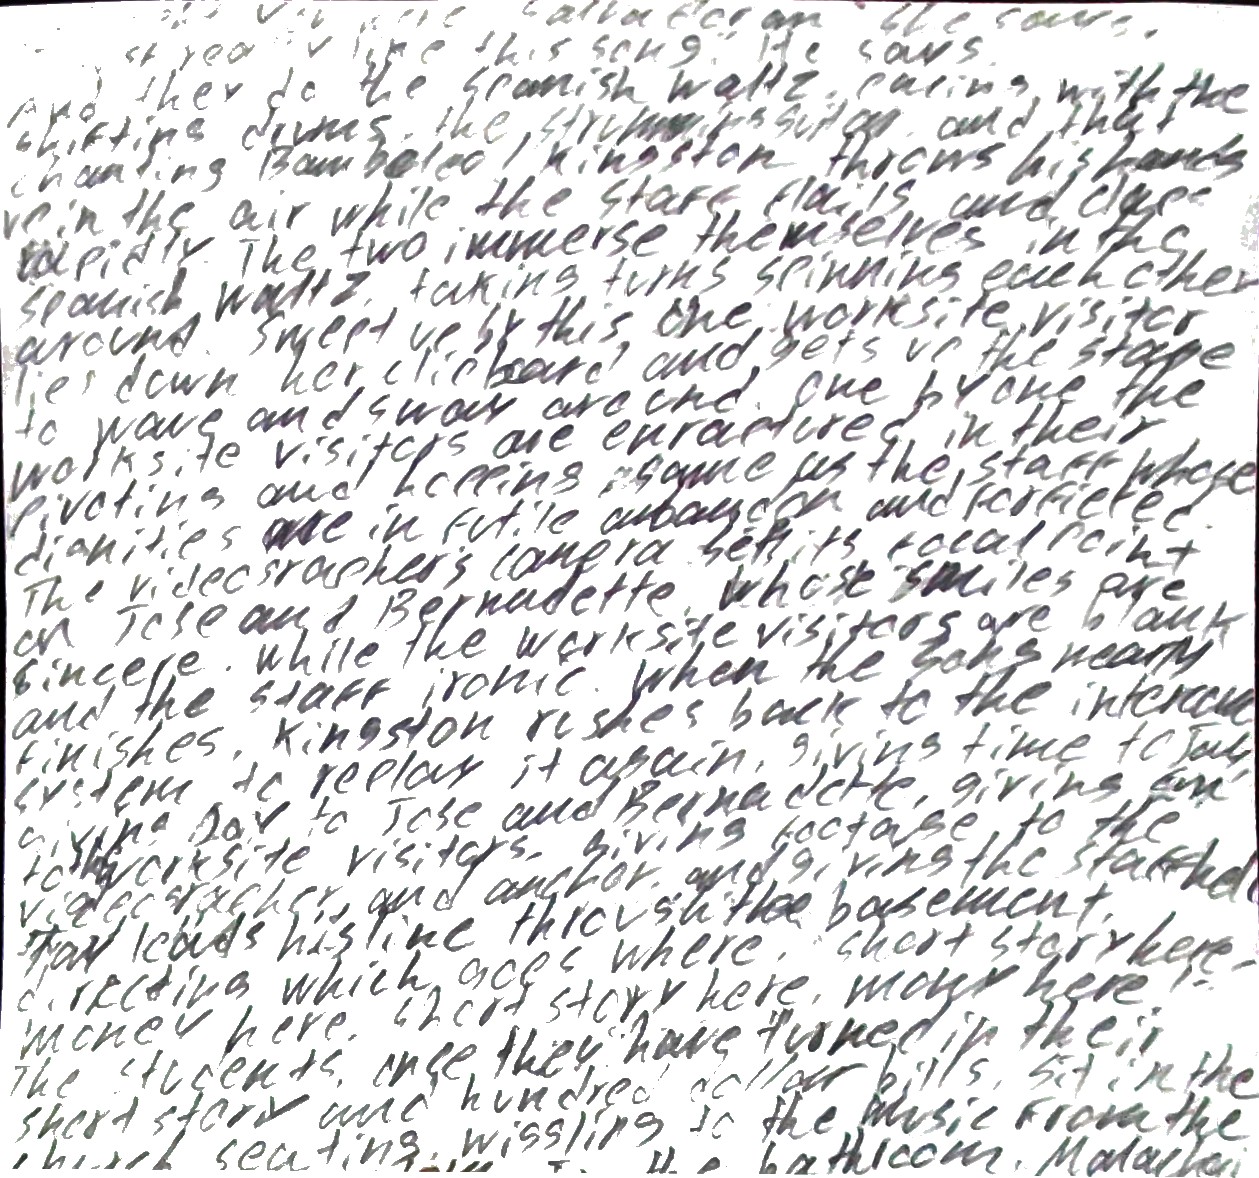 she says.
like this song." He says.
And they do the Spanish waltz, pacing with the
shifting drums, the strumming guitar, and that
chanting Bamboleo! Kingston throws his hands
up in the air while the staff flails and claps
rapidly. The two immerse themselves in the
Spanish waltz, taking turns spinning each other
around. Swept up by this, one worksite visitor
lies down her clipboard and gets up the stage
to wave and sway around. One by one the
worksite visitors are enraptured in their
pivoting and hopping, same as the staff whose
dignities are in futile abandon and forfeited.
The videographer's camera sets its focal point
on Jose and Bernadette, whose smiles are
sincere, while the worksite visitors are blank
and the staff ironic. When the song nearly
finishes, Kingston rushes back to the intercom
system to replay it again, giving time to Jay,
giving joy to Jose and Bernadette, giving
to the worksite visitors, giving footage to the
videographer and anchor, and giving the staff hell.
Jay leads his line through the basement,
directing which goes where, "Short story here-
money here. Short story here, money here!"
The students, once they have turned in their
short story and hundred dollar bills, sit in the
church seating, wiggling to the music from the
the bathroom. Malachai